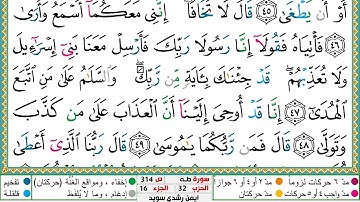 أَوْ أَن يَطْغَىٰ ٤٥ قَالَ لَا تَخَافَآ إِنَّنِى مَعَكُمَآ أَسْمَعُ وَأَرَىٰ
٤٦ فَأْتِيَاهُ فَقُولَآ إِنَّا رَسُولَا رَبِّكَ فَأَرْسِلْ مَعَنَا بَنِىٓ إِسْرَٰٓءِيلَ
وَلَا تُعَذِّبْهُمْ قَدْ جِئْنَٰكَ بِـَٔايَةٍ مِّن رَّبِّكَ وَالسَّلَٰمُ عَلَىٰ مَنِ اتَّبَعَ
الْهُدَىٰٓ ٤٧ إِنَّا قَدْ أُوحِىَ إِلَيْنَآ أَنَّ الْعَذَابَ عَلَىٰ مَن كَذَّبَ
وَتَوَلَّىٰ ٤٨ قَالَ فَمَن رَّبُّكُمَا يَٰمُوسَىٰ ٤٩ قَالَ رَبُّنَا الَّذِىٓ أَعْطَىٰ
سورة طه ص 314
الحزب 32 الجزء 16
ايمن رشدي سويد
مدّ ٦ حركات لزوماً مدّ ٢ أو ٤ أو ٦ جوازاً
مدّ واجب ٤ أو ٥ حركات مدّ حركتان
إخفاء، ومواقع الغُنَّة (حركتان) تفخيم
إدغام، وما لا يُلفَظ قلقلة